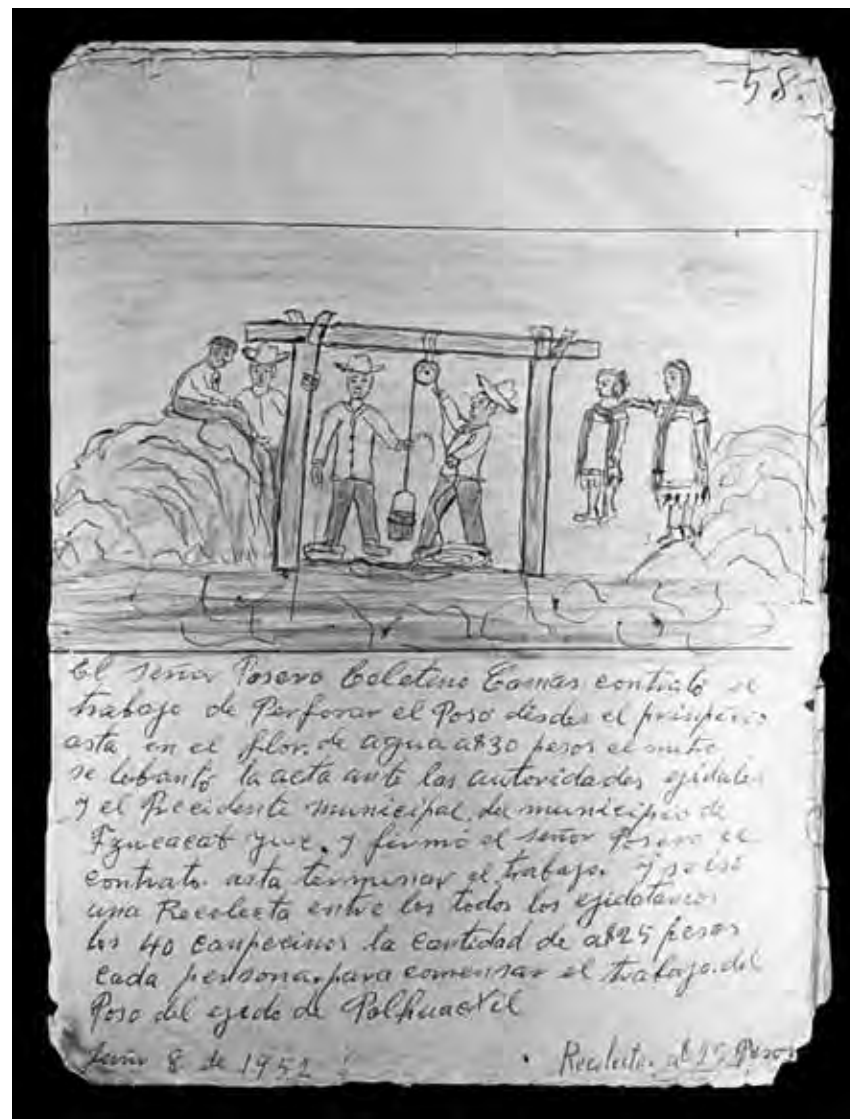 -58.-
El señor Posero Celetino Camas contrató el
trabajo de Perforar el Poso desde el prinsipio
asta en el flor de agua a $30 pesos el metro
se lebantó la acta ante las autoridades ejidales
y el Precidente municipal del municipio de
Tzucacab Yuc. y firmó el señor Posero el
contrato asta terminar el trabajo. y se isó
una Recolecta entre los todos los ejidatarios
los 40 canpecinos la cantidad de a $25 pesos
cada persona para comensar el trabajo del
Poso del ejido de Polhuacxil
Junio 8 de 1952
Recolecta a $25 Pesos